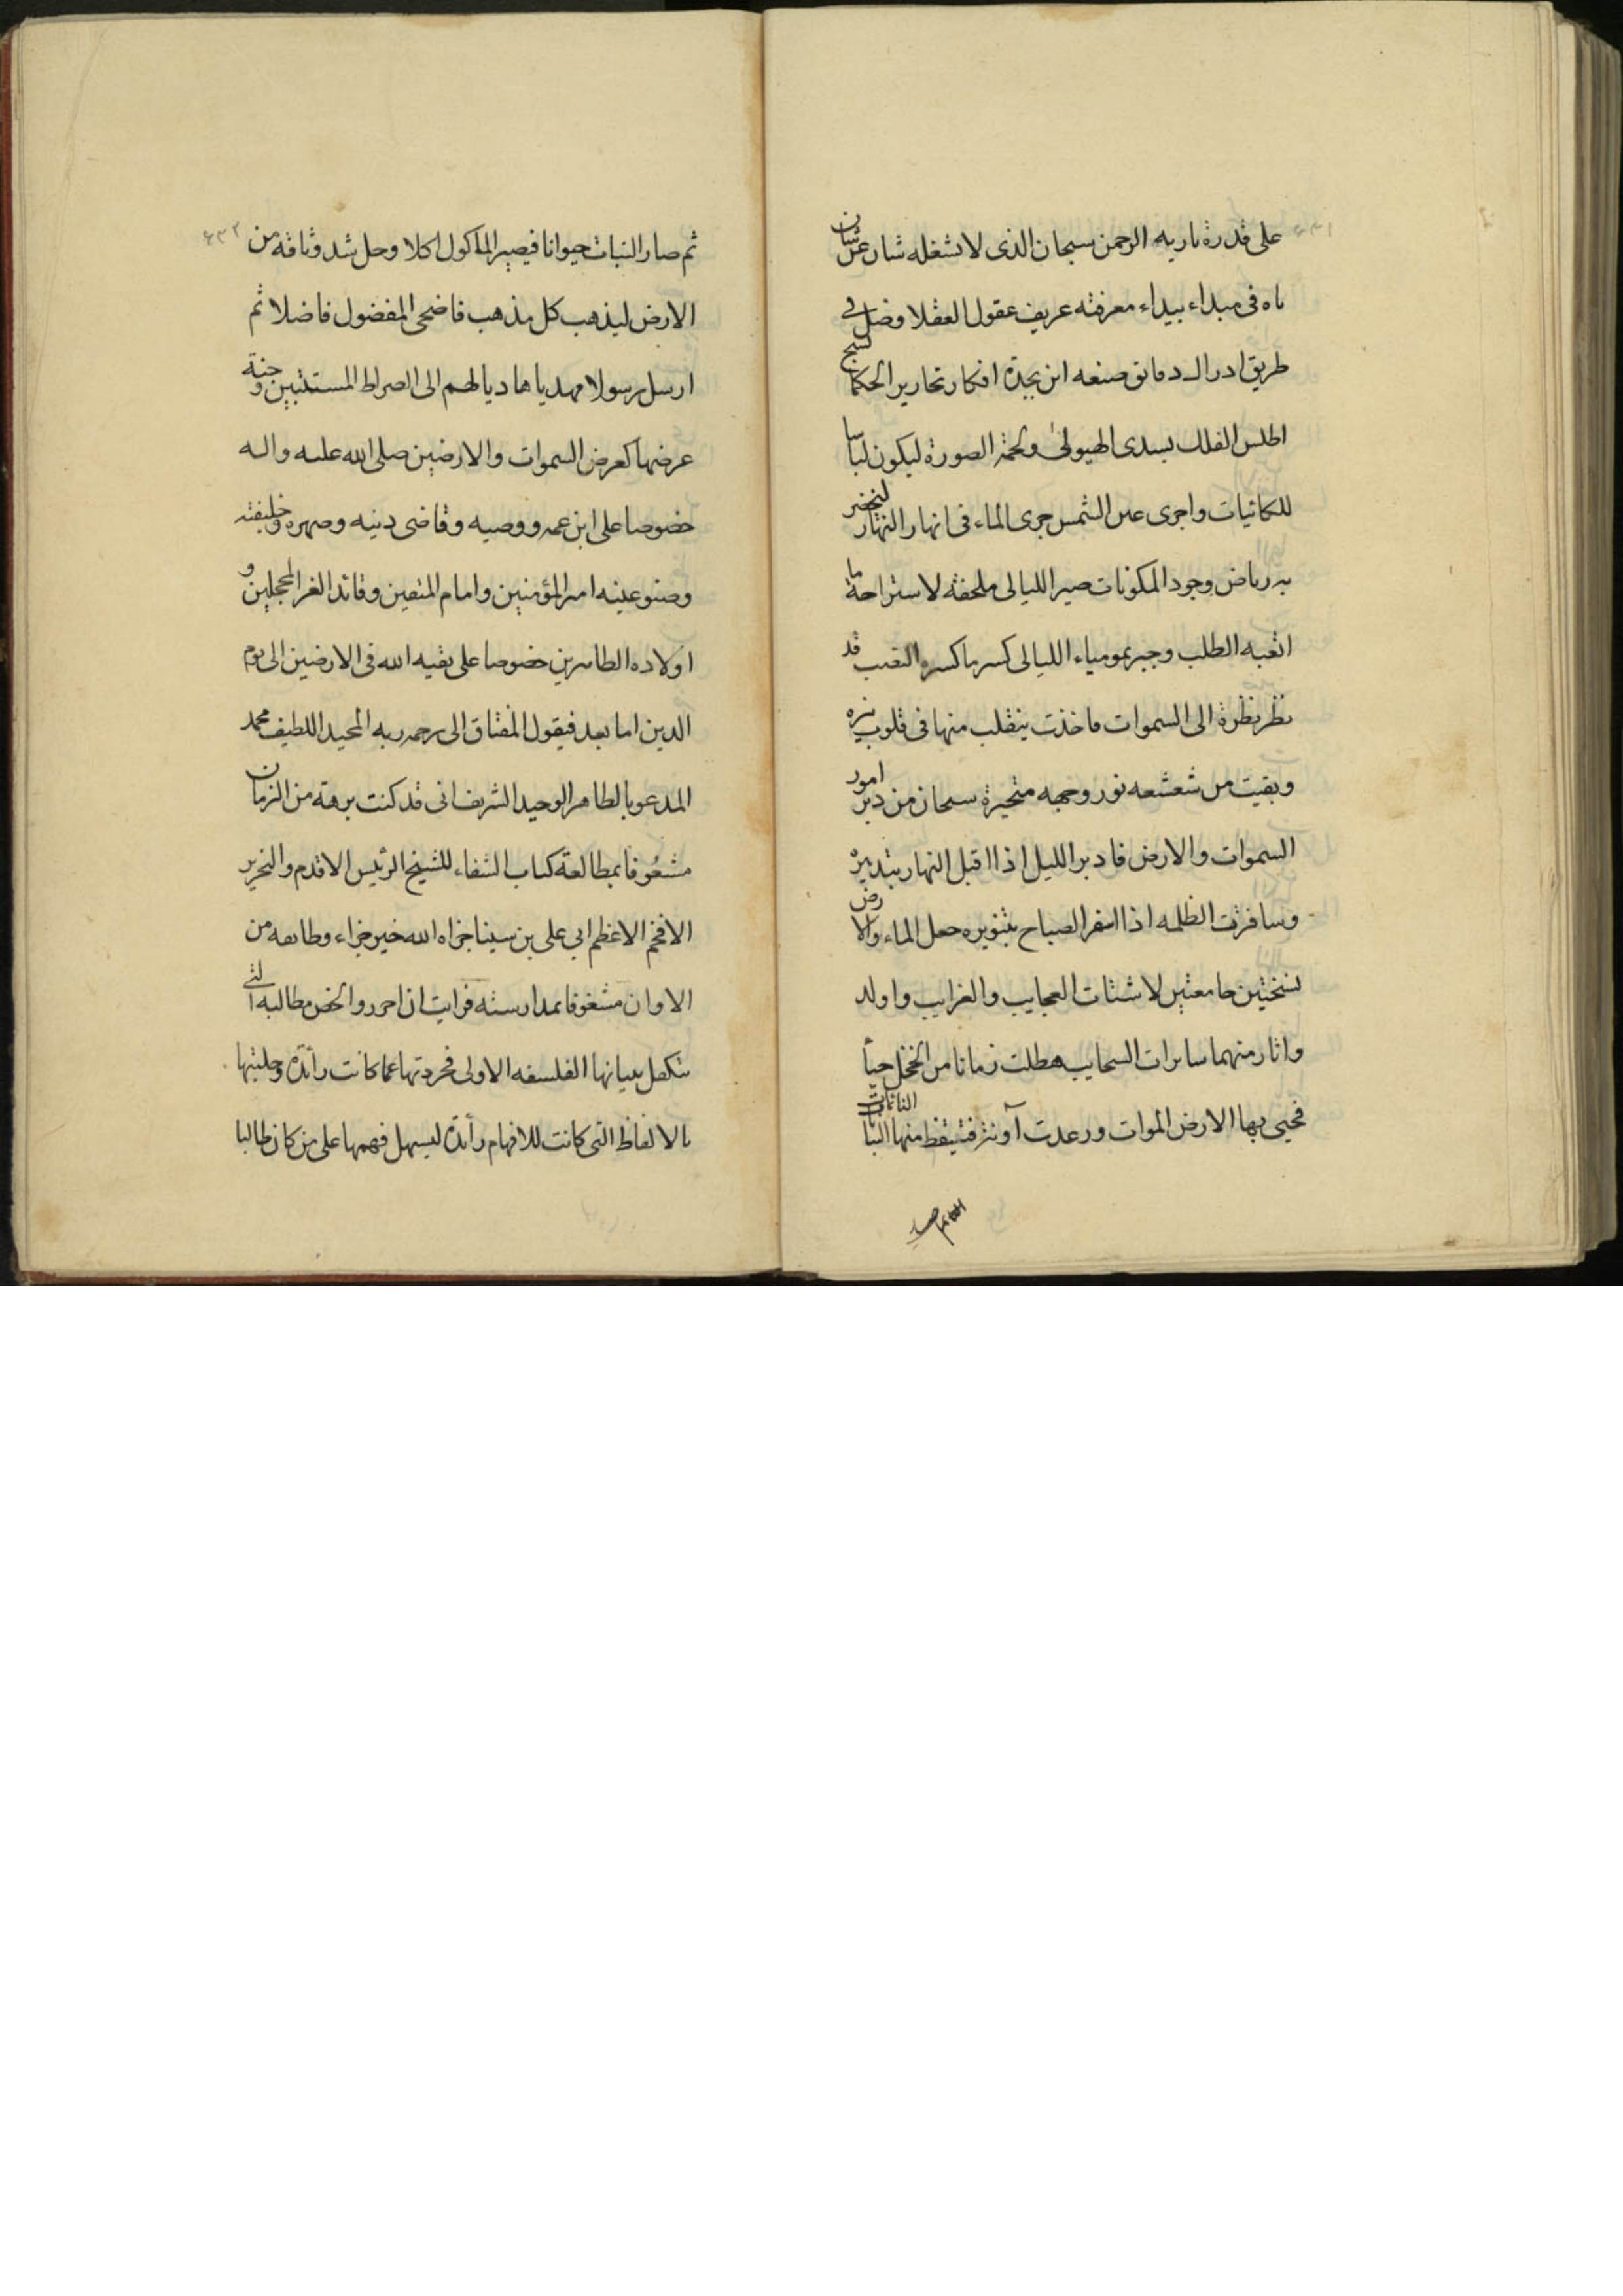 على قدرة باريه الرحمن سبحان الذى لا تشغله شان عن شان
تاه فى مبداء بيداء معرفته عريف عقول العقلا وضل فى
طريق ادراك دقايق صنعه ابن بجدة افكار نحارير الحكما نسج
اطلس الفلك بسدى الهيولى ولحمة الصورة ليكون لباسا
للكائنات واجرى عين الشمس جرى الماء فى انهار النهار ليخضر
به رياض وجود المكونات صير الليالى ملحفة لاستراحة ما
اتعبه الطلب وجبر بمومياء الليالى كسر ما كسره التعب قد
نظر نظرة الى السموات فاخذت ينقلب منها فى قلوب
وبقيت من شعشعه نور وجهه متحيرة سبحان من دبر امور
السموات والارض فادبر الليل اذا اقبل النهار بتدبيره
وسافرت الظلمه اذا اسفر الصباح بتنويره جعل الماء والارض
نسختين جامعتين لاشتات العجايب والغرايب واولد
واثار منهما سايرات السحايب هطلت زمانا من الخجل حيأ
فحيى بها الارض الموات ورعدت آونة فتيقظ منها النباتات النائمات
ثم صار النبات حيوانا فيصير الماكول اكلا وحل شد وثاقه من
الارض ليذهب كل مذهب فاضحى المفضول فاضلا ثم
ارسل رسولا مهديا هاديا لهم الى الصراط المستبين وجنة
عرضها كعرض السموات والارضين صلى الله عليه واله
خصوصا على ابن عمه ووصيه وقاضى دينه وصهره وخليفته
وصنو عينه امير المؤمنين وامام المتقين وقائد الغر المحجلين و
اولاده الطاهرين خصوصا على بقيه الله فى الارضين الى يوم
الدين اما بعد فيقول المفتاق الى رحمه ربه المجيد اللطيف محمد
المدعو بالطاهر الوحيد الشريف انى قد كنت برهة من الزمان
مشعوفا بمطالعة كتاب الشفاء للشيخ الرئيس الاقدم والنحرير
الافخم الاعظم ابى على بن سينا جزاه الله خير جزاء وطايفه من
الاوان مشغوفا بمدارسته فرايت ان احرر والخص مطالبه التى
تتكفل ببيانها الفلسفه الاولى فجردتها عما كانت زائدة وحليتها
بالالفاظ التى كانت للافهام رائدة ليسهل فهمها على من كان طالبا